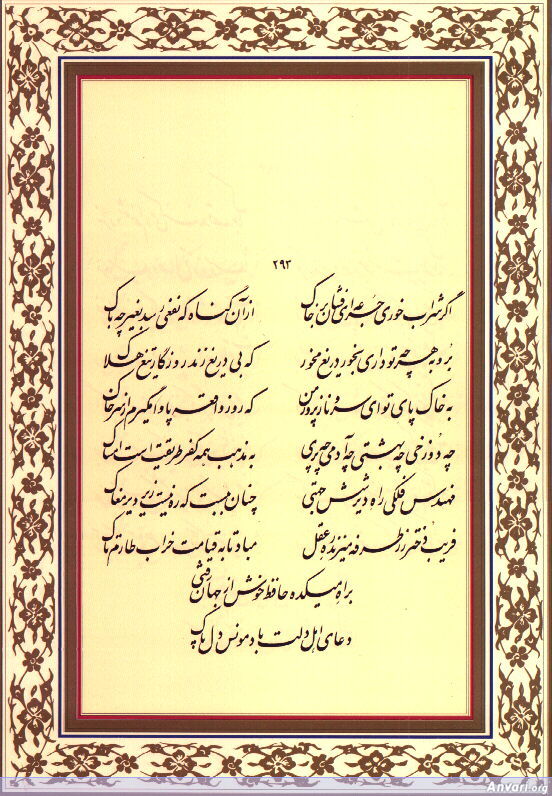 ۲۹۳
اگر شراب خوری جرعه‌ای فشان بر خاک    از آن گناه که نفعی رسد بغیر چه باک
برو بهر چه تو داری بخور دریغ مخور    که بی دریغ زند روزگار تیغ هلاک
به خاک پای تو ای سرو نازپرور من    که روز واقعه پا وامگیرم از سر خاک
چه دوزخی چه بهشتی چه آدمی چه پری    به مذهب همه کفر طریقت است امساک
مهندس فلکی راه دیر شش جهتی    چنان ببست که ره نیست زیر دیر مغاک
فریب دختر رز طرفه میزند ره عقل    مباد تا به قیامت خراب طارم تاک
براه میکده حافظ خوش از جهان رفتی
دعای اهل دلت باد مونس دل پاک
Anvari.org